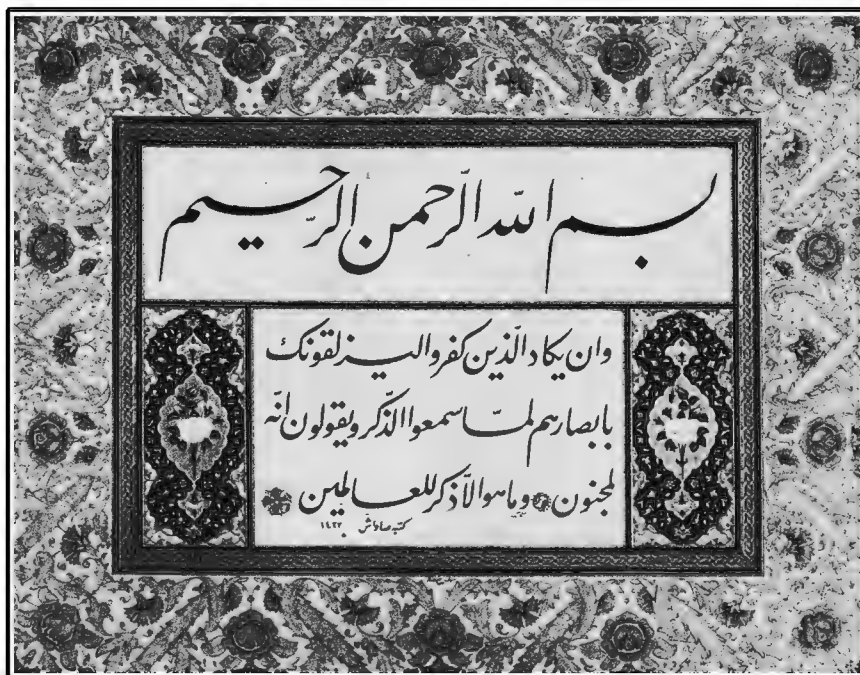 بسم الله الرّحمن الرّحیم
وان یکاد الّذین کفروا لیزلقونک
بابصارهم لمّا سمعوا الذّکر ویقولون انّه
لمجنون وما هو الّا ذکر للعالمین
کتبه ۱۴۲۲